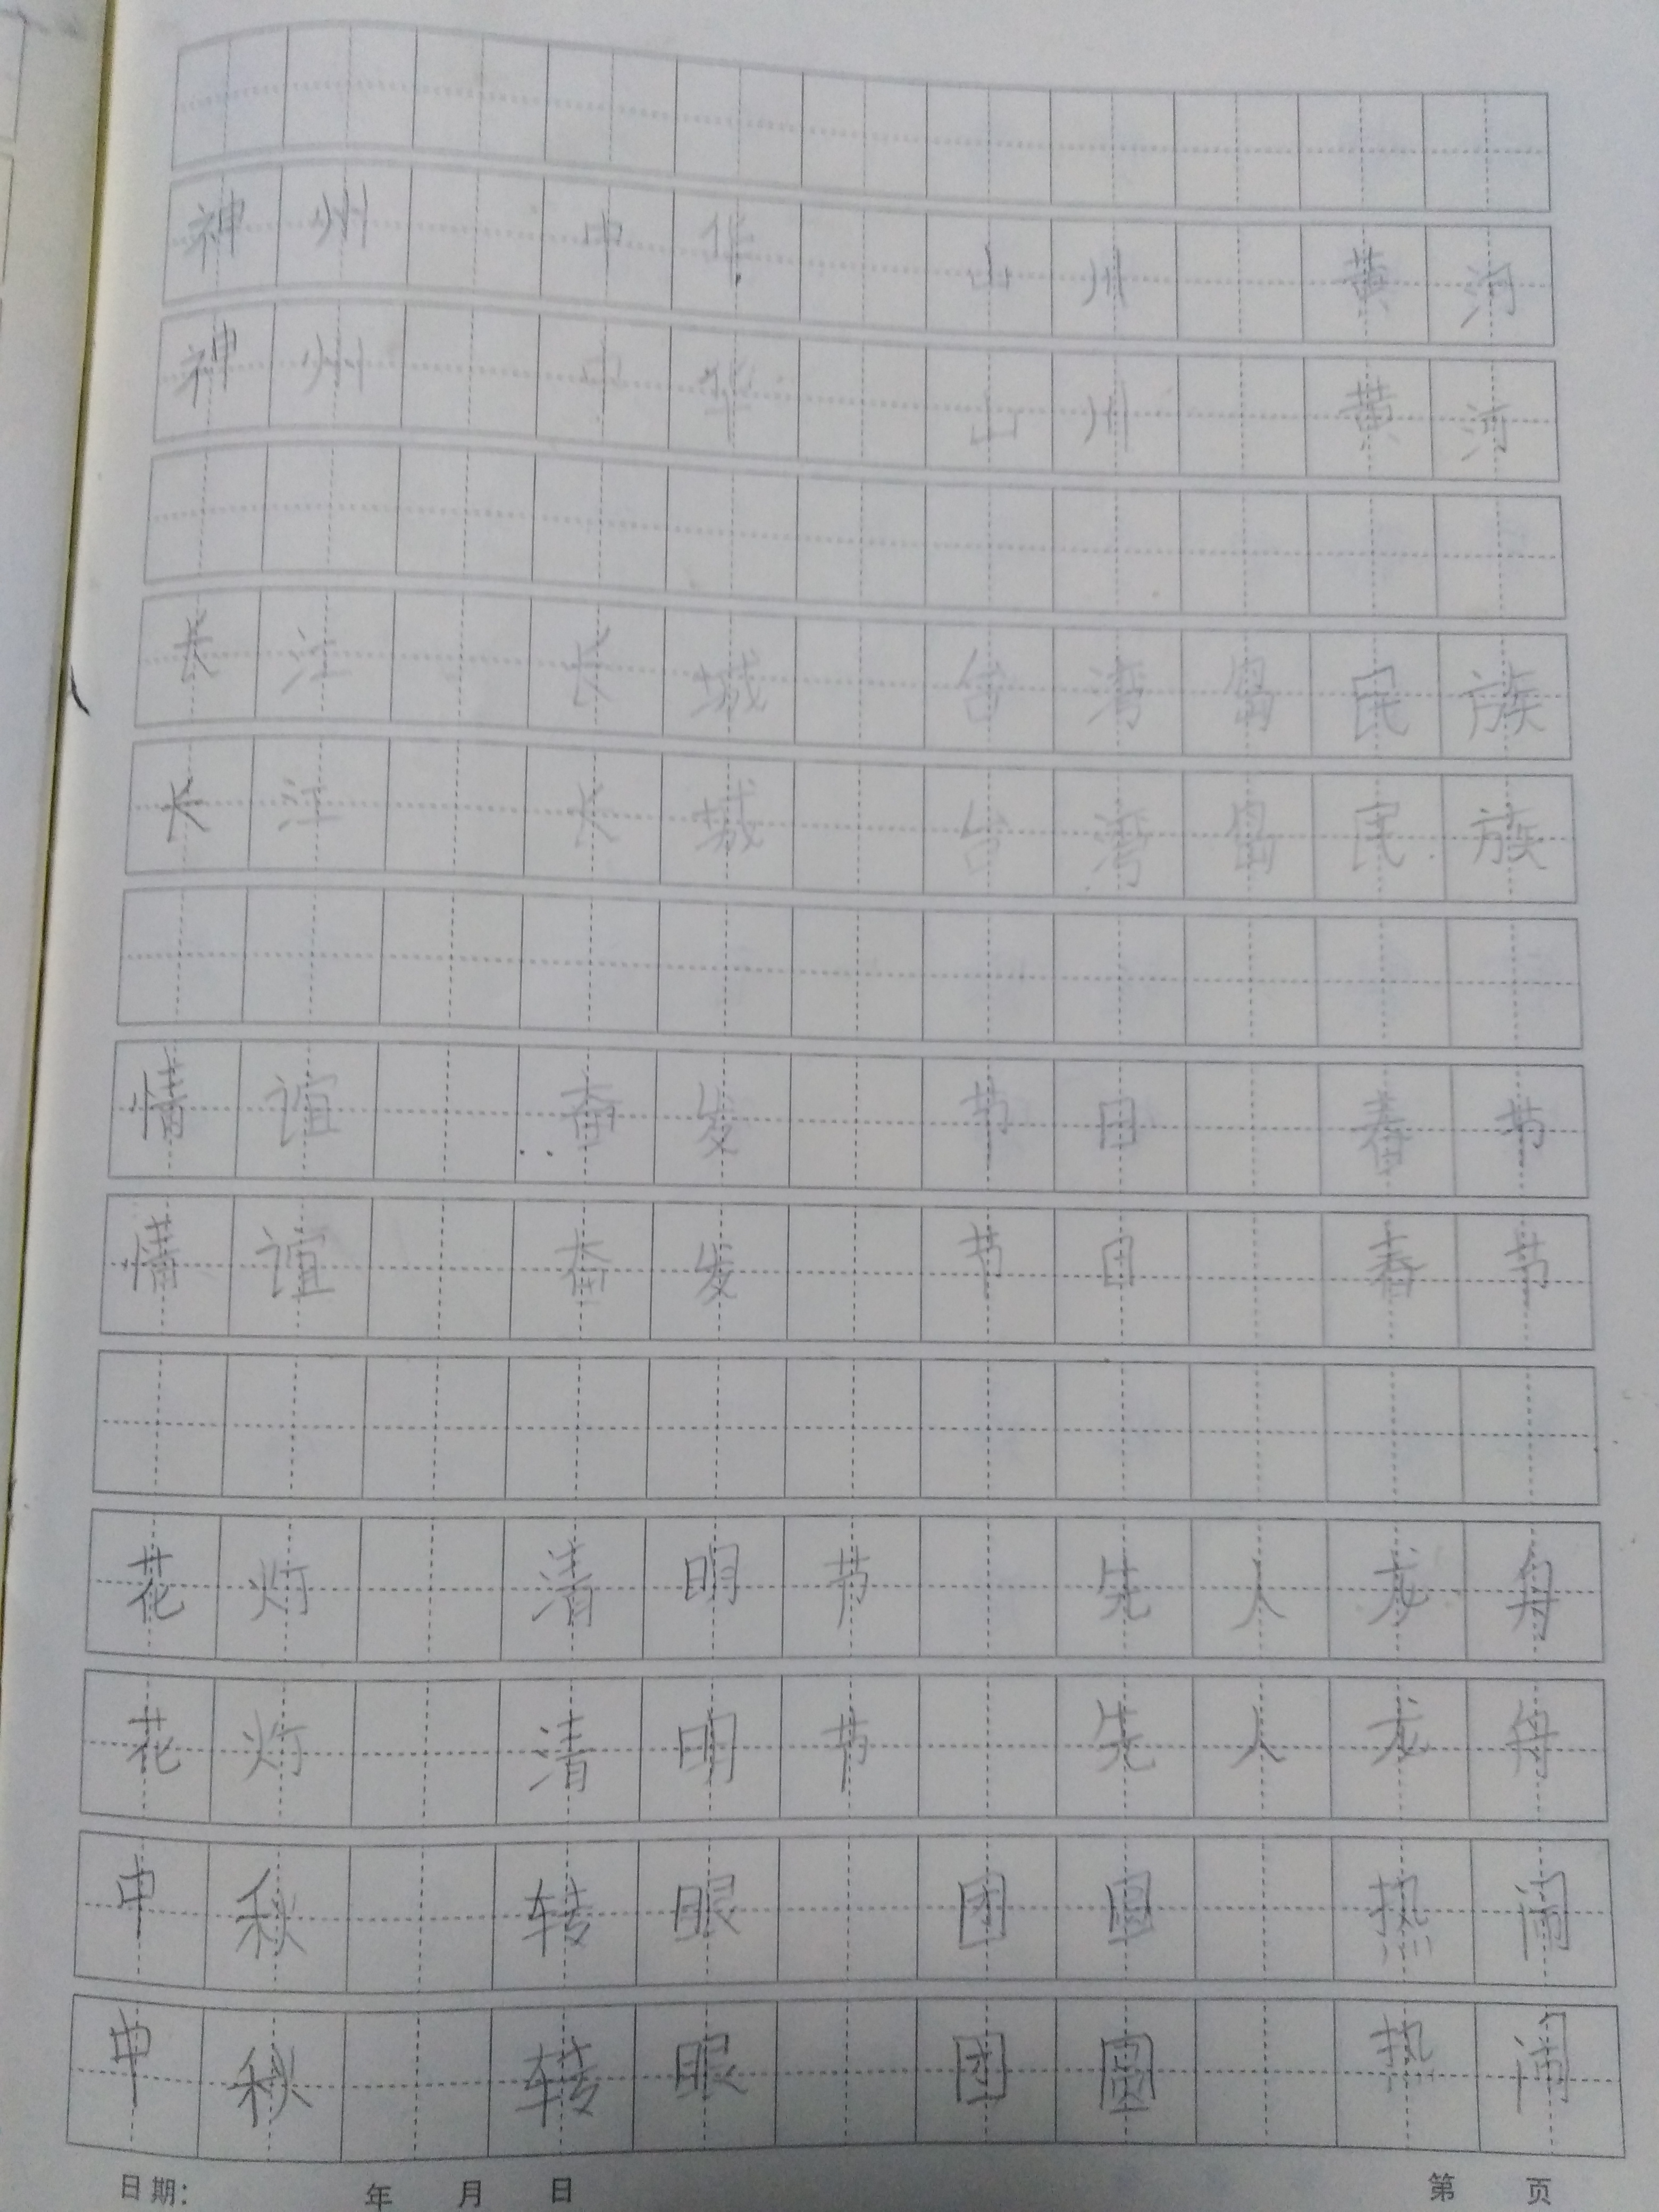 神州 中华 山川 黄河
神州 中华 山川 黄河
长江 长城 台湾岛民族
长江 长城 台湾岛民族
情谊 奋发 节日 春节
情谊 奋发 节日 春节
花灯 清明节 先人龙舟
花灯 清明节 先人龙舟
中秋 转眼 团圆 热闹
中秋 转眼 团圆 热闹
日期： 年 月 日 第 页